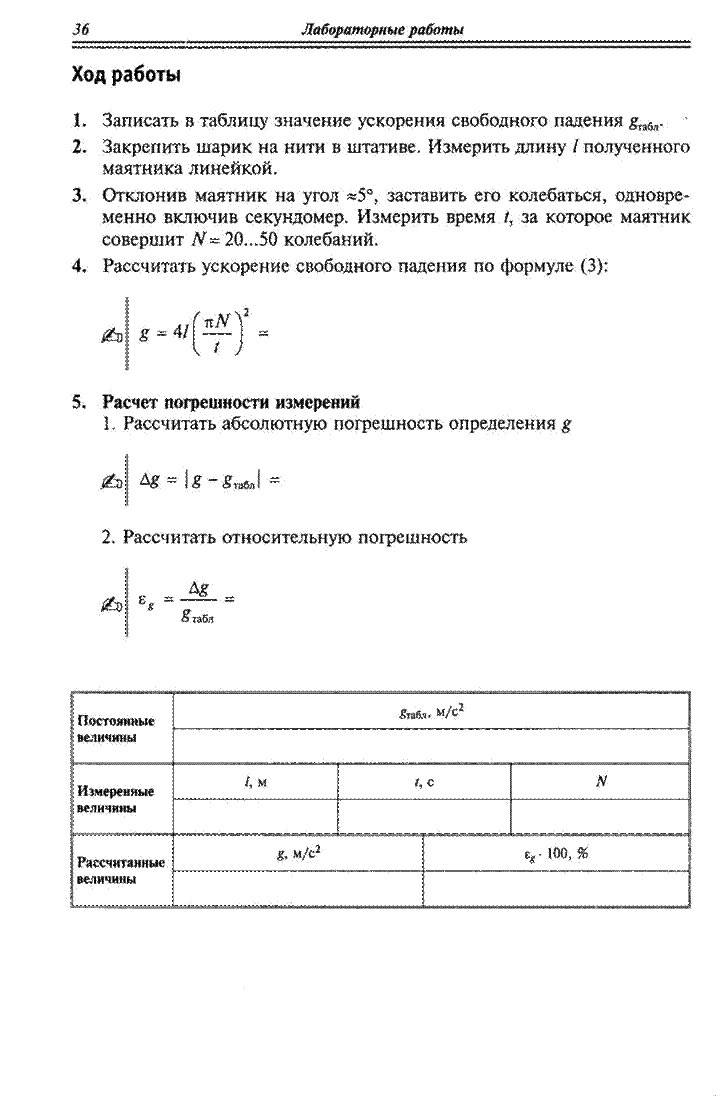 36 Лабораторные работы
Ход работы
1. Записать в таблицу значение ускорения свободного падения gтабл.
2. Закрепить шарик на нити в штативе. Измерить длину l полученного
маятника линейкой.
3. Отклонив маятник на угол ≈5°, заставить его колебаться, одновре-
менно включив секундомер. Измерить время t, за которое маятник
совершит N = 20...50 колебаний.
4. Рассчитать ускорение свободного падения по формуле (3):
g = 4l(πN/t)² =
5. Расчет погрешности измерений
1. Рассчитать абсолютную погрешность определения g
Δg = |g − gтабл| =
2. Рассчитать относительную погрешность
εg = Δg/gтабл =
Постоянные
величины
gтабл, м/с²
Измеренные
величины
l, м
t, с
N
Рассчитанные
величины
g, м/с²
εg · 100, %